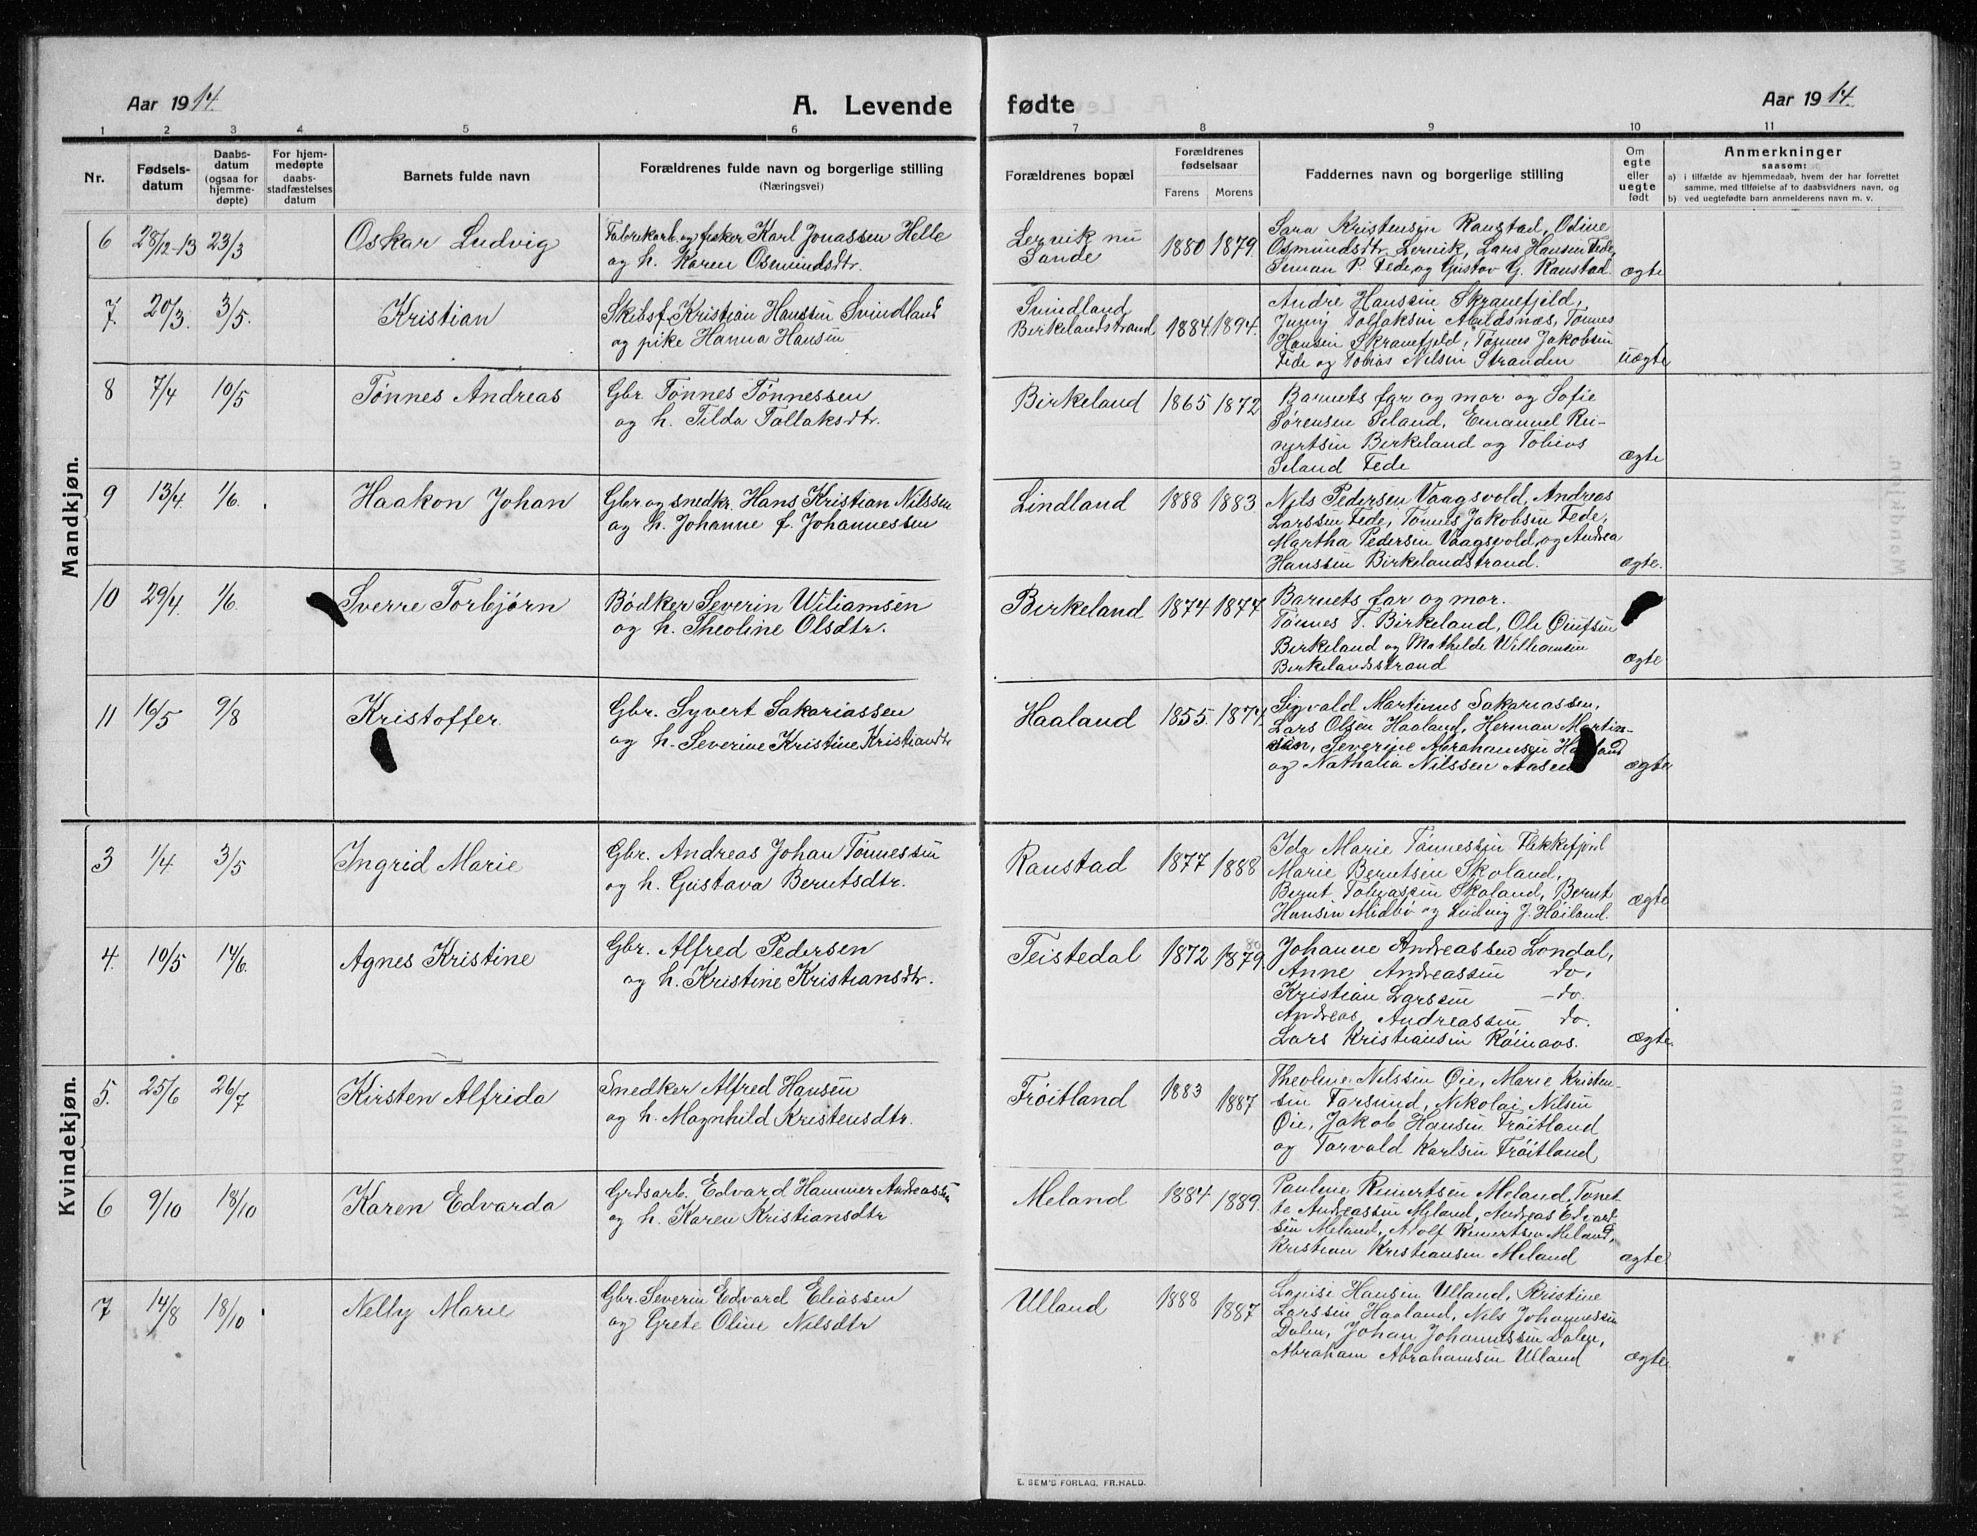 Aar 1914. A. Levende fødte Aar 1914.
1 2 3 4 5 6 7 8 9 10 11
Nr.
Fødsels-
datum
Daabs-
datum
(ogsaa for
hjemme-
døpte)
For hjem-
medøpte
daabs-
stadfæstelses
datum
Barnets fulde navn
Forældrenes fulde navn og borgerlige stilling
(Næringsvei)
Forældrenes bopæl
Forældrenes
fødselsaar
Farens Morens
Faddernes navn og borgerlige stilling
Om
egte
eller
uegte
født
Anmerkninger
saasom:
a) i tilfælde av hjemmedaab, hvem der har forrettet
samme, med tilføielse af to daabsvidners navn, og
b) ved uegtefødte barn anmelderens navn m. v.
Mandkjøn.
6 28/12-13 23/3 Oskar Ludvig
Fabrikarb. og fisker Karl Jonassen Helle
og h. Karen Osmundsdtr.
Lervik nu
Sande
1880 1879.
Sara Kristensen Ranstad, Odine
Osmundsdtr. Lervik, Lars Hansen Fede,
Seman P. Fede, og Gustav G. Ranstad.
ægte
7. 20/3. 3/5. Kristian
Skibsf. Kristian Hansen Svindland
og pike Hanna Hansen
Svindland
Birkelandstrand
1884 1894.
Andre Hanssen Skranefjeld,
Tollaksen Abildsnæs, Tønnes
Hansen Skranefjeld, Tønnes Jakobsen
Fede og Tobias Nilsen Stranden
uægte
8 7/4 10/5 Tønnes Andreas
Gbr. Tønnes Tønnessen
og h. Tilda Tollaksdtr.
Birkeland
1865 1872
Barnets far og mor og Sofie
Sørensen Seland, Emanuel Rei-
nertsen Birkeland og Tobias
Seland Fede
ægte
9 13/4. 1/6. Haakon Johan
Gbr. og snedkr. Hans Kristian Nilssen
og h. Johanne f. Johannessen
Lindland
1888 1883
Nils Pedersen Vaagsvold, Andreas
Larssen Fede, Tønnes Jakobsen Fede,
Martha Pedersen Vaagsvold, og Andrea
Hanssen Birkelandstrand.
ægte.
10 29/4. 1/6. Sverre Torbjørn
Bødker Severin Wiliamsen
og h. Theoline Olsdtr.
Birkeland
1874 1877
Barnets far og mor.
Tønnes T. Birkeland, Ole
Birkeland og Mathilde Williamsen
Birkelandsstrand
ægte
11 16/5 9/8 Kristoffer.
Gbr. Syvert Sakariassen
og h. Severine Kristine Kristiandtr
Haaland
1855. 1874.
Sigvald Martinus Sakariassen,
Lars Olsen Haaland, Herman Martin-
sen, Severine Abrahamsen Haaland
og Nathalia Nilssen Aasen
ægte
Kvindekjøn.
3 1/4 3/5 Ingrid Marie
Gbr. Andreas Johan Tønnessen
og h. Gustava Berntsdtr.
Ranstad
1877 1888
Ida Marie Tønnessen Flekkefjord
Marie Berntsen Skoland,
Bernt Tobiassen Skoland, Bernt
Hansen Midbø og Ludvig J. Høiland.
ægte
4. 10/5 14/6. Agnes Kristine
Gbr. Alfred Pedersen
og h. Kristine Kristiansdtr.
Teistedal
1872 1879. 80
Johanne Andreassen Londal,
Anne Andreassen do,
Kristian Larssen - do.
Andreas Andreassen do.
Lars Kristiansen Røinaas.
ægte.
5. 25/6 26/7 Kirsten Alfrida
Snedker Alfred Hansen
og h. Magnhild Kristensdtr.
Frøitland
1883 1887
Theoline Nilssen Øie, Marie Kristen-
sen Farsund, Nikolai Nilsen
Øie, Jakob Hansen Frøitland
og Torvald Karlsen Frøitland
6 9/10 18/10 Karen Edvarda
Grdsarb. Edvard Hammer Andreassen
og h. Karen Kristiansdtr
Meland
1884 1889.
Pauline Reinertsen Meland, Tonet-
te Andreassen Meland, Andreas Edvard-
sen Meland, Adolf Reinertsen Meland,
Kristian Kristiansen Meland
ægte
7 14/8 18/10 Nelly Marie
Gbr. Severin Edvard Eliassen
og Grete Oline Nilsdtr
Ulland
1888 1887
Lovise Hansen Ulland, Kristine
Larssen Haaland, Nils Johannessen
Dalen, Johan Johannessen Dalen,
Abraham Abrahamsen Ulland
ægte
E. SEM'S FORLAG, FR.HALD.